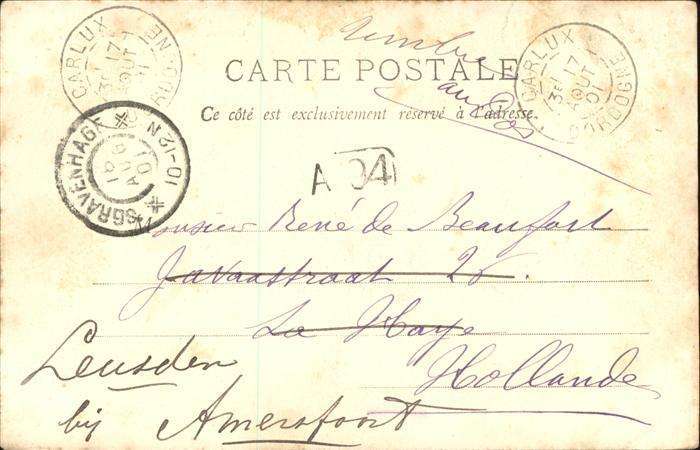 CARLUX
3E 17
AOUT
01
DORDOGNE
timbre
au dos
CARTE POSTALE
Ce côté est exclusivement réservé à l'adresse.
CARLUX
3E 17
AOUT
01
DORDOGNE
'SGRAVENHAGE
10-12 N
AUG
01
A 04
Monsieur René de Beaufort
Javaastraat 26.
La Haye
Hollande
Leusden
bij Amersfoort